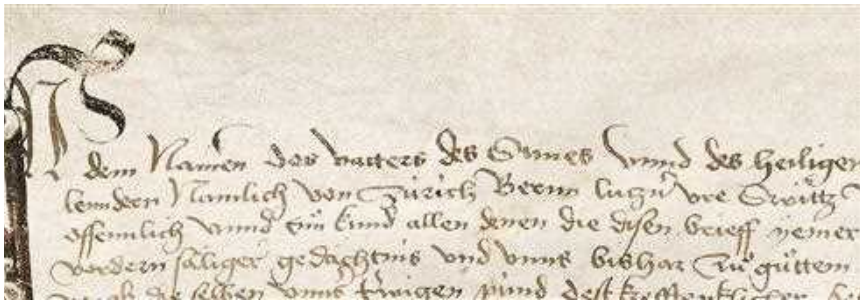 In dem Namen des vatters des Sunes unnd des heiligen
lenndern Namlich von Zürich Bernn lutzern vre Swÿtz
offennlich unnd tün kund allen denen die disen brieff yemer
vordern säliger gedächtnis und unns bishar zu güttem
die selben unns Ewigen pünd dest